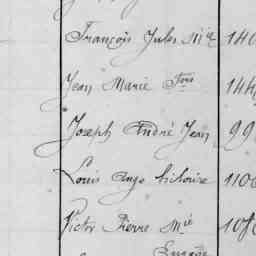 François Jules Mie 140
Jean Marie Fois 144
Joseph André Jean 99
Louis Ange Victoire 1100
Victor Pierre Mie 108